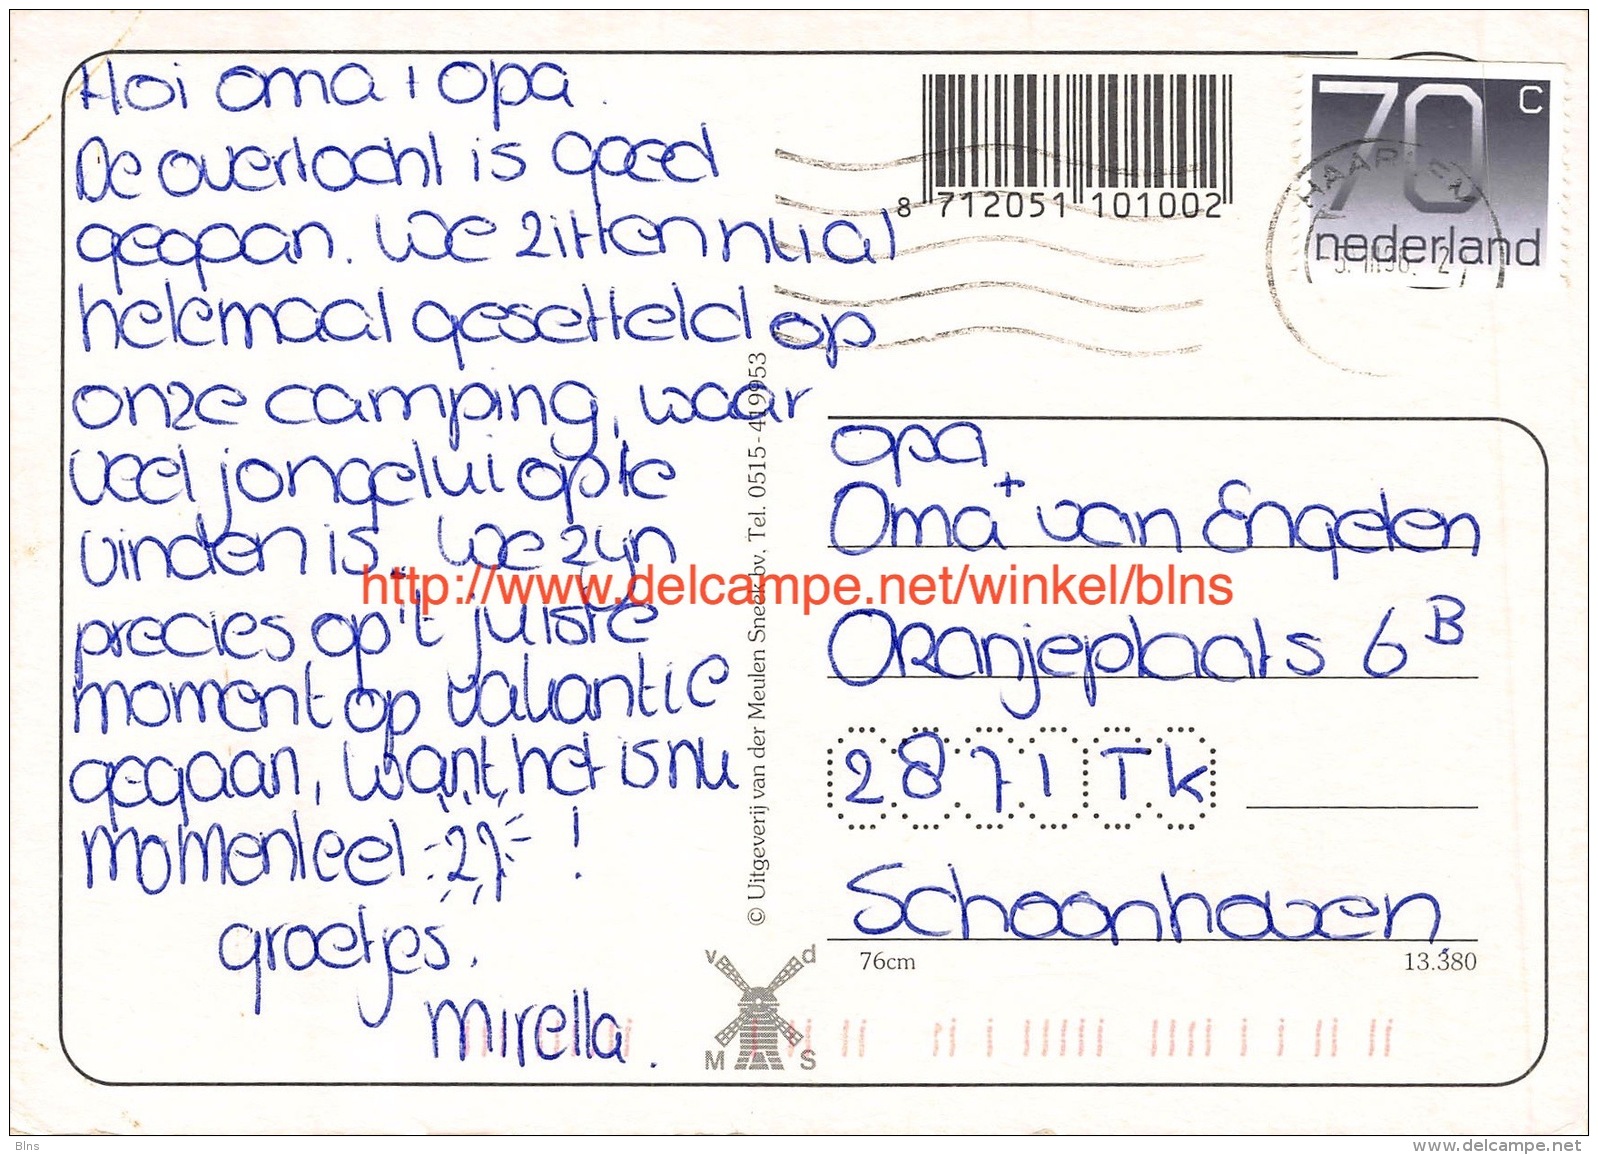 Hoi oma + opa.
De overtocht is goed
gegaan. We zitten nu al
helemaal gesetteld op
onze camping, waar
veel jongelui op te
vinden is. We zijn
precies op 't juiste
moment op vakantie
gegaan, want het is nu
momenteel 27 !
groetjes.
Mirella.
8 712051 101002
70 c
nederland
HAARLEM
© Uitgeverij van der Meulen Sneek bv. Tel. 0515-419953
opa
+
Oma van Engelen
Oranjeplaats 6 B
2871 TK
Schoonhoven.
76cm
13.380
v d
M S
http://www.delcampe.net/winkel/blns
Blns
www.delcampe.net